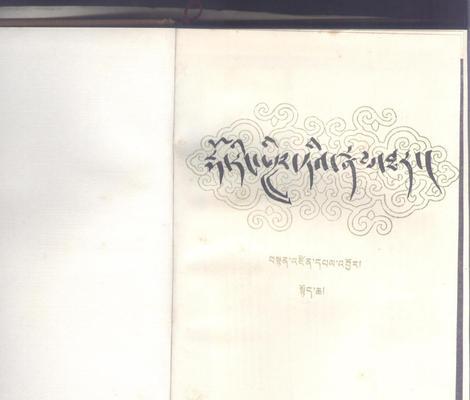 རྡོ་རིང་པཎྜི་ཏའི་རྣམ་ཐར།
བསྟན་འཛིན་དཔལ་འབྱོར།
སྟོད་ཆ།